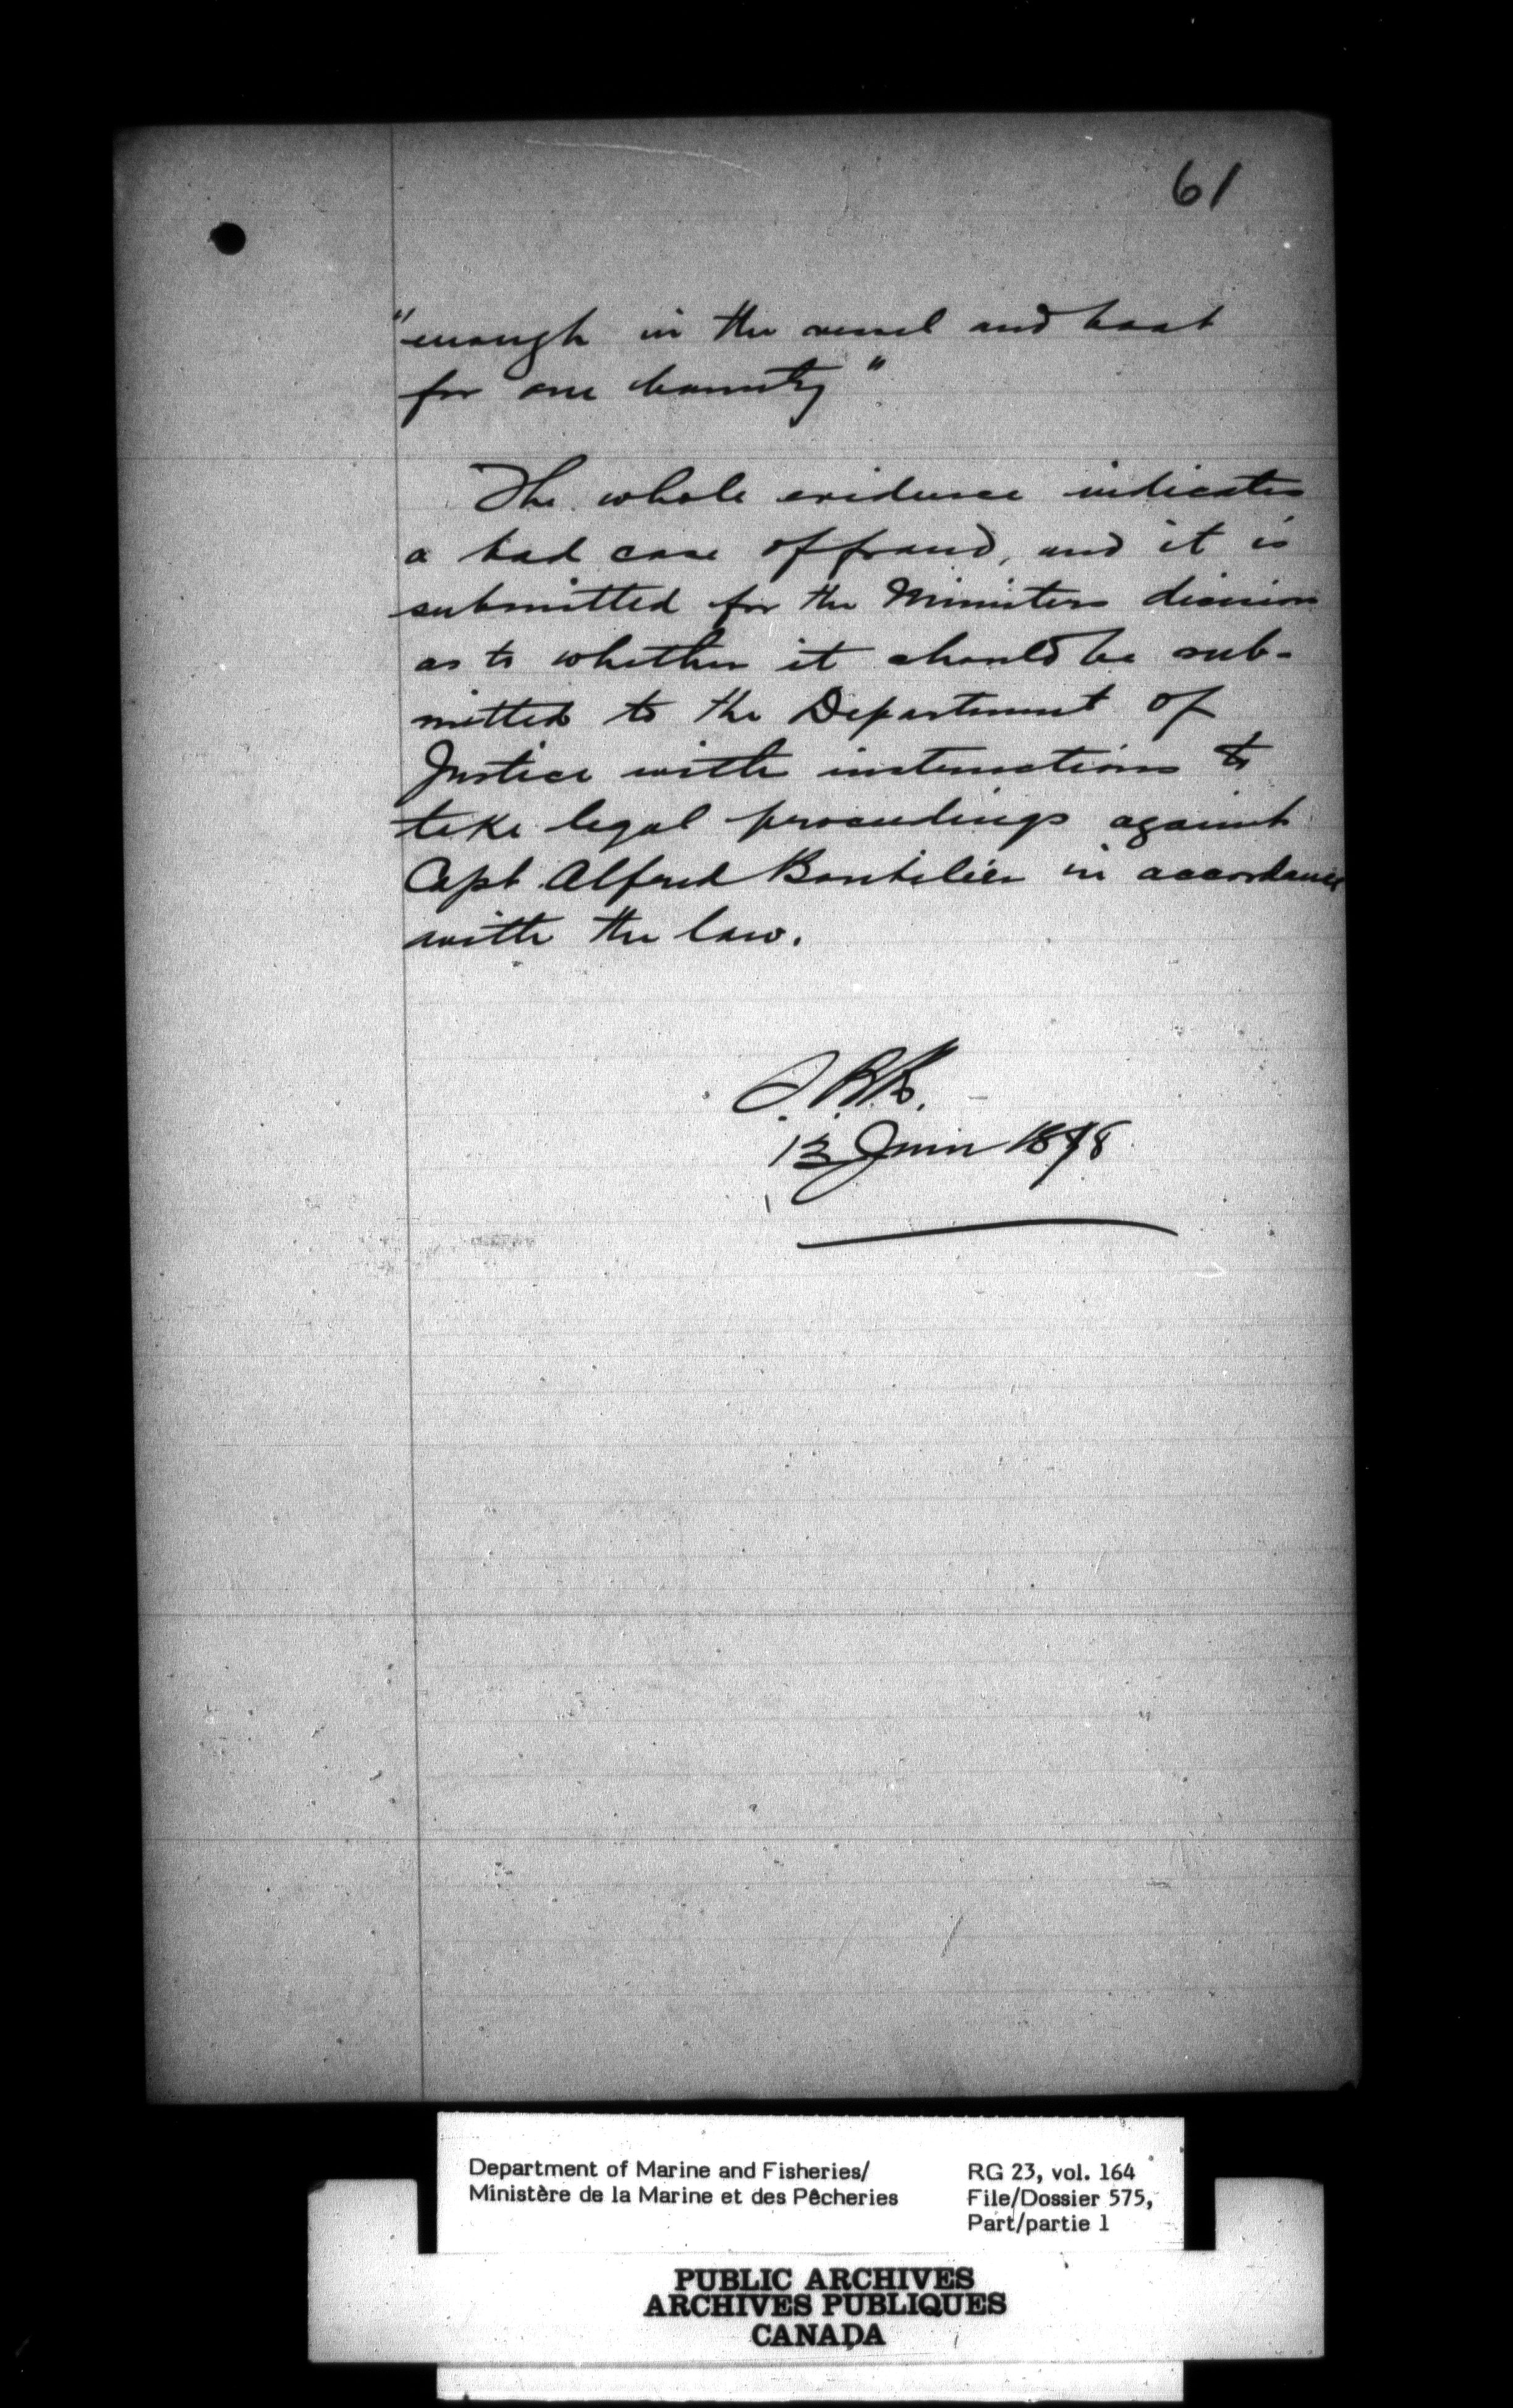 61
"enough in the vessel and boat
for one bounty"
The whole evidence indicates
a bad case of fraud, and it is
submitted for the Ministers decision
as to whether it should be sub-
mitted to the Department of
Justice with instructions to
take legal proceedings against
Capt Alfred Boutilier in accordance
with the law.
13 June 1898
Department of Marine and Fisheries/
Ministère de la Marine et des Pêcheries
RG 23, vol. 164
File/Dossier 575,
Part/partie 1
PUBLIC ARCHIVES
ARCHIVES PUBLIQUES
CANADA